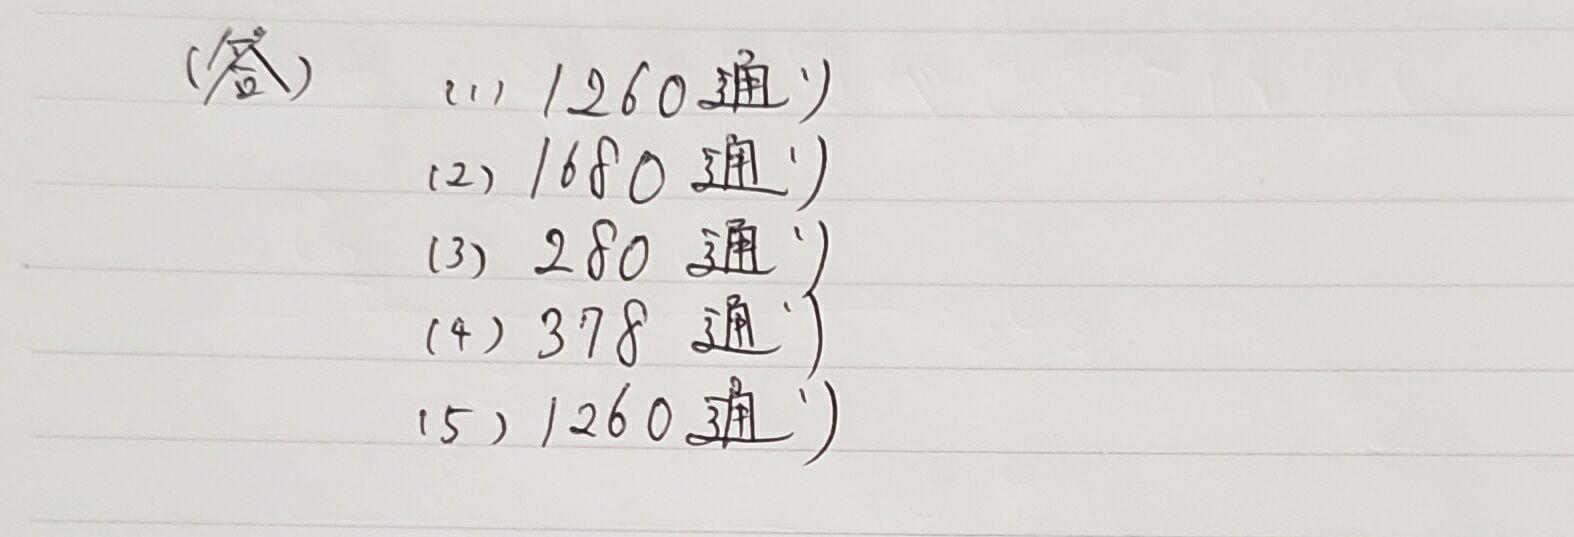 (答) (1) 1260通り
(2) 1680通り
(3) 280通り
(4) 378通り
(5) 1260通り